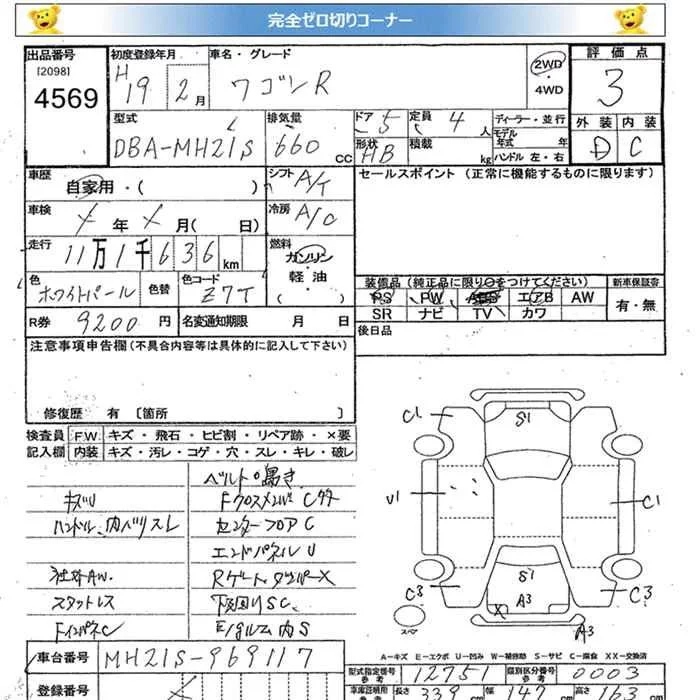 完全ゼロ切りコーナー
出品番号 初度登録年月 車名・グレード 評価点
[2098] H19 2月 ワゴンR 2WD・4WD 3
4569
型式 排気量 ドア 5 定員 4人 ディーラー・並行 外装 内装
DBA-MH21S 660cc 形状 HB 積載 kg モデル年式 年 D C
ハンドル 左・右
車歴 シフト A/T セールスポイント (正常に機能するものに限ります)
自家用・( )
車検 X年X月( 日) 冷房 A/C
走行 11万1千636km 燃料 ガソリン
軽・油
( )
色 色替 色コード 装備品 (純正品に限り○をつけてください) 新車保証書
ホワイトパール Z7T PS PW エアB AW 有・無
SR ナビ TV カワ
R券 9200円 名変通知期限 月 日 後日品
注意事項申告欄(不具合内容等は具体的に記入して下さい)
修復歴 有 [箇所 ]
検査員 F.W キズ・飛石・ヒビ割・リペア跡・×要
記入欄 内装 キズ・汚レ・コゲ・穴・スレ・キレ・破レ
ベルト
キズU
ハンドル、内ベリスレ センターフロアC
エンドパネルU
社外AW. Rゲートダンパー×
スタットレス 下回りSC
FインパネC 内S
C1 S1
U1 C1
C3 S1 C3
X A3
スペア A3
A-キズ E-エクボ U-凹み W-補修跡 S-サビ C-腐食 XX-交換済
車台番号 MH21S-969117 型式指定番号 参考 12751 類別区分番号 参考 0003
登録番号 X 車庫証明用 参考 長さ 339cm 幅 147cm 高さ 163cm